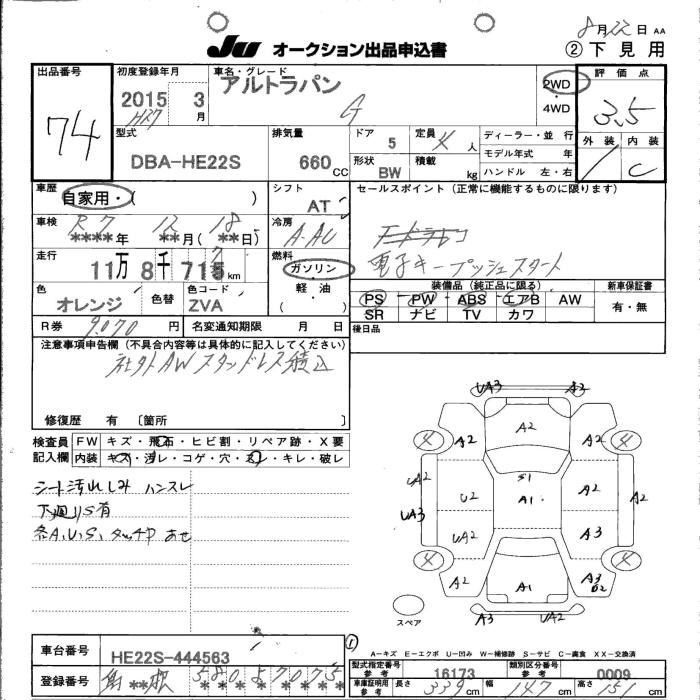 8月22日 AA
JU オークション出品申込書
②下見用
出品番号
74
初度登録年月
2015 3
H27 月
車名・グレード
アルトラパン
G
2WD
・
4WD
評価点
3.5
外装 内装
C
型式
DBA-HE22S
排気量
660 CC
ドア 5
定員 4 人
形状 BW
積載 kg
ディーラー・並 行
モデル年式 年
ハンドル 左・右
車歴
自家用・( )
シフト
AT
セールスポイント(正常に機能するものに限ります)
車検
R7 12 18
****年 **月(**日)
冷房
A-AC
電子キープッシュスタート
走行
11万8千715km
燃料
ガソリン
軽・油
( )
装備品(純正品に限る)
PS PW ABS エアB AW
SR ナビ TV カワ
新車保証書
有・無
色
オレンジ
色替
色コード
ZVA
R券 9070 円
名変通知期限 月 日
後日品
注意事項申告欄(不具合内容等は具体的に記入してください)
社外AW スタッドレス積込
修復歴 有 〔箇所 〕
検査員
記入欄
FW キズ・飛石・ヒビ割・リペア跡・X要
内装 キズ・汚レ・コゲ・穴・スレ・キレ・破レ
シート汚れしみ ハンスレ
下廻りS有
各A,U,S,タッチP あせ
UA3 A2
4 A2 A2 A2 4
S1
UA2 U2 A1 A2 A2
UA3
UA2 A3
4 A2 A1 A3 4
スペア
A3 UA2
A－キズ E－エクボ U－凹み W－補修跡 S－サビ C－腐食 XX－交換済
車台番号
HE22S-444563
型式指定番号
参考
16173
類別区分番号
参考
0009
登録番号
580
車庫証明用
参考
長さ 339 cm
幅 147 cm
高さ 151 cm